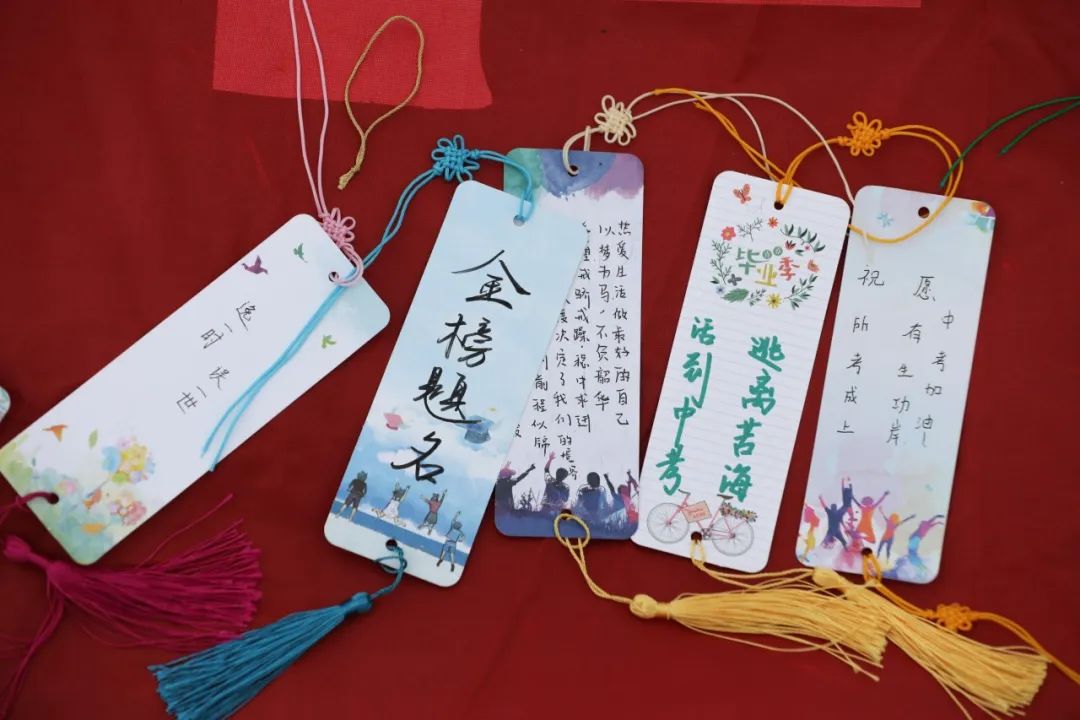 逸一时
误一世
金榜题名
热爱生活做最好的自己
以梦为马，不负韶华
戒骄戒躁，稳中求进
了我们的
前程似锦
毕业季
逃离苦海
活到中考
中考加油
祝愿
所有考生
成功上岸